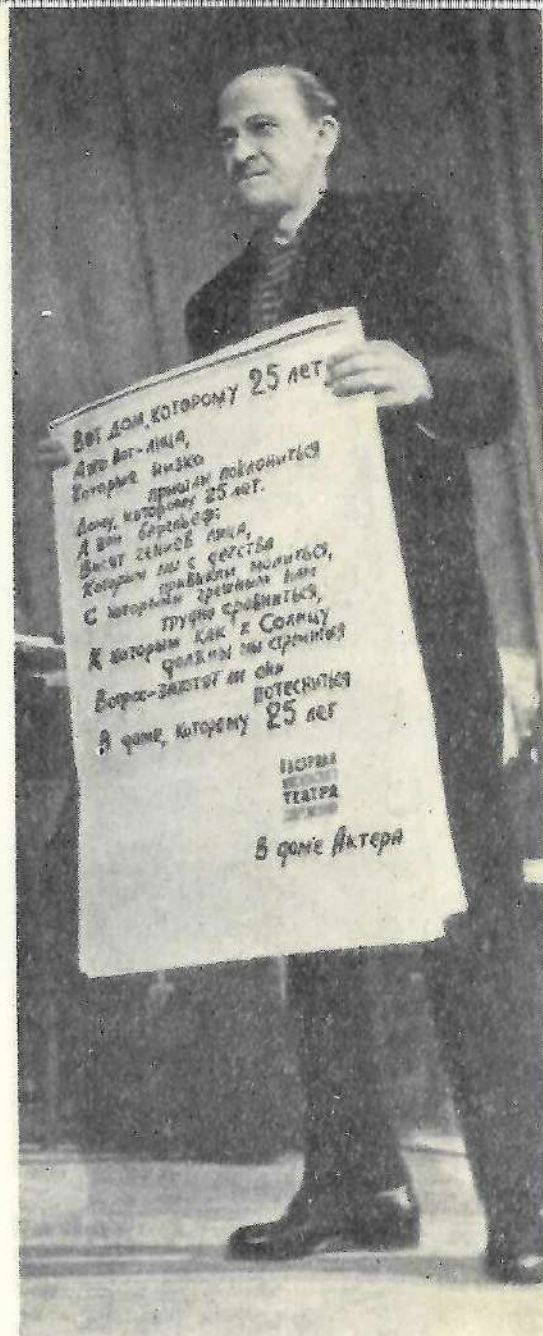 Вот дом, которому 25 лет
А это вот - лица,
Которые низко
пришли поклониться
Дому, которому 25 лет.
А вот барельеф:
Висят гениев лица,
Которым мы с детства
привыкли молиться,
С которыми грешным нам
трудно сравниться,
К которым как к Солнцу
должны мы стремиться
Вопрос - захотят ли они
потесниться
В доме, которому 25 лет
ТЕАТРА
В доме Актера